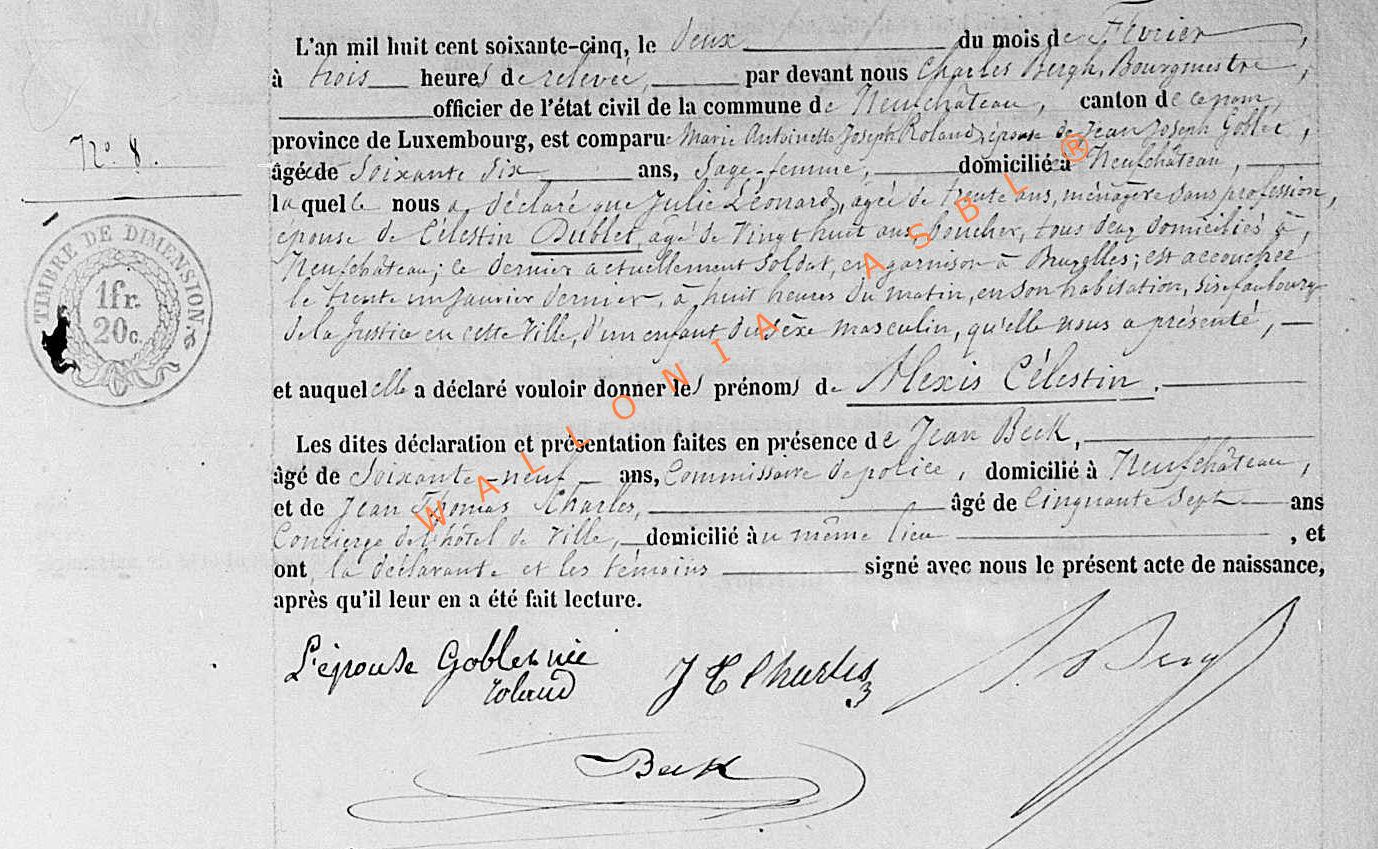 L'an mil huit cent soixante-cinq, le deux du mois de Février,
à trois heures de relevée, par devant nous Charles Bergh, Bourgmestre,
officier de l'état civil de la commune de Neufchâteau, canton de ce nom,
N.º 8.
province de Luxembourg, est comparue Marie Antoinette Joseph Roland, épouse de Jean Joseph Goblet,
âgée de Soixante Six ans, Sage-femme, domicilié à Neufchâteau,
laquelle nous a déclaré que Julie Léonard, agée de trente ans, ménagère sans profession,
épouse de Célestin Dublet, agé de Vingt huit ans, boucher, tous deux domiciliés à,
Neufchâteau; ce dernier actuellement soldat, en garnison à Bruxelles; est accouchée
le trente un Janvier dernier, à huit heures du matin, en son habitation, sise faubourg
de la Justice en cette Ville, d'un enfant du sèxe masculin, qu'elle nous a présenté,
et auquel elle a déclaré vouloir donner les prénoms de Alexis Célestin.
Les dites déclaration et présentation faites en présence de Jean Beck,
âgé de Soixante-neuf ans, Commissaire de police, domicilié à Neufchâteau,
et de Jean Thomas Charles, âgé de Cinquante Sept ans
Concierge de l'hôtel de Ville, domicilié au même lieu, et
ont la déclarante et les témoins signé avec nous le présent acte de naissance,
après qu'il leur en a été fait lecture.
TIMBRE DE DIMENSION.
1 fr.
20 c.
L'épouse Goblet née
roland
J T Charles
Bergh
Beck
WALLONIA ASBL ®